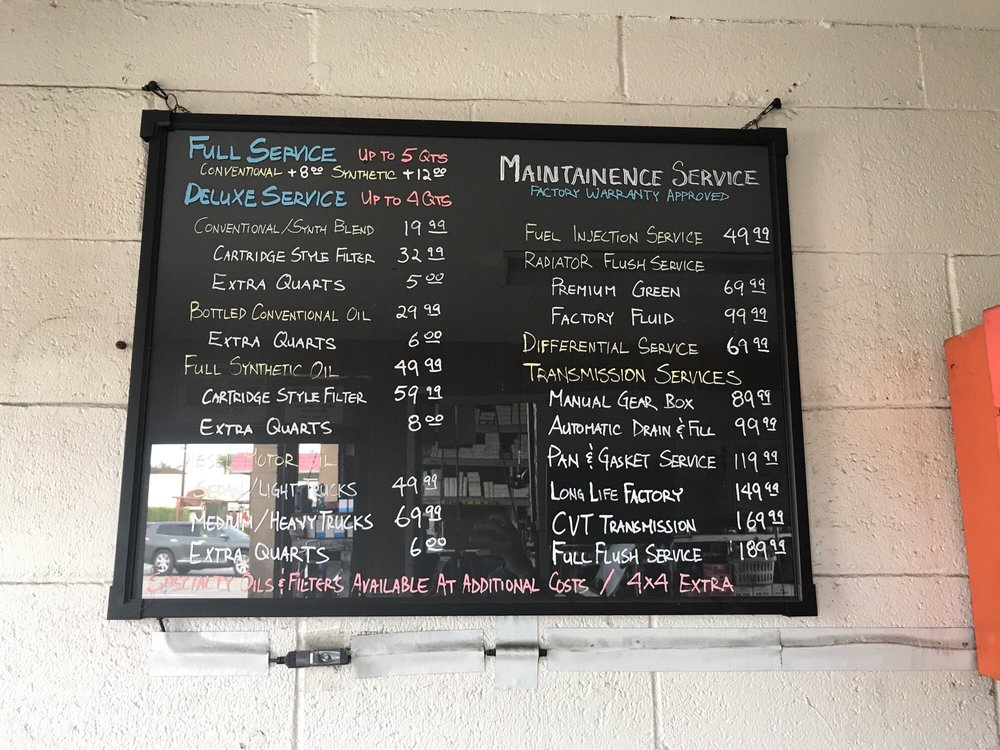 FULL SERVICE UP TO 5 QTS
CONVENTIONAL +8.00 SYNTHETIC +12.00
DELUXE SERVICE UP TO 4 QTS
CONVENTIONAL/SYNTH BLEND 19.99
CARTRIDGE STYLE FILTER 32.99
EXTRA QUARTS 5.00
BOTTLED CONVENTIONAL OIL 29.99
EXTRA QUARTS 6.00
FULL SYNTHETIC OIL 49.99
CARTRIDGE STYLE FILTER 59.99
EXTRA QUARTS 8.00
DIESEL MOTOR OIL
SEDAN/LIGHT TRUCKS 49.99
MEDIUM/HEAVY TRUCKS 69.99
EXTRA QUARTS 6.00
MAINTAINENCE SERVICE
FACTORY WARRANTY APPROVED
FUEL INJECTION SERVICE 49.99
RADIATOR FLUSH SERVICE
PREMIUM GREEN 69.99
FACTORY FLUID 99.99
DIFFERENTIAL SERVICE 69.99
TRANSMISSION SERVICES
MANUAL GEAR BOX 89.99
AUTOMATIC DRAIN & FILL 99.99
PAN & GASKET SERVICE 119.99
LONG LIFE FACTORY 149.99
CVT TRANSMISSION 169.99
FULL FLUSH SERVICE 189.99
SPECIALTY OILS & FILTERS AVAILABLE AT ADDITIONAL COSTS / 4x4 EXTRA